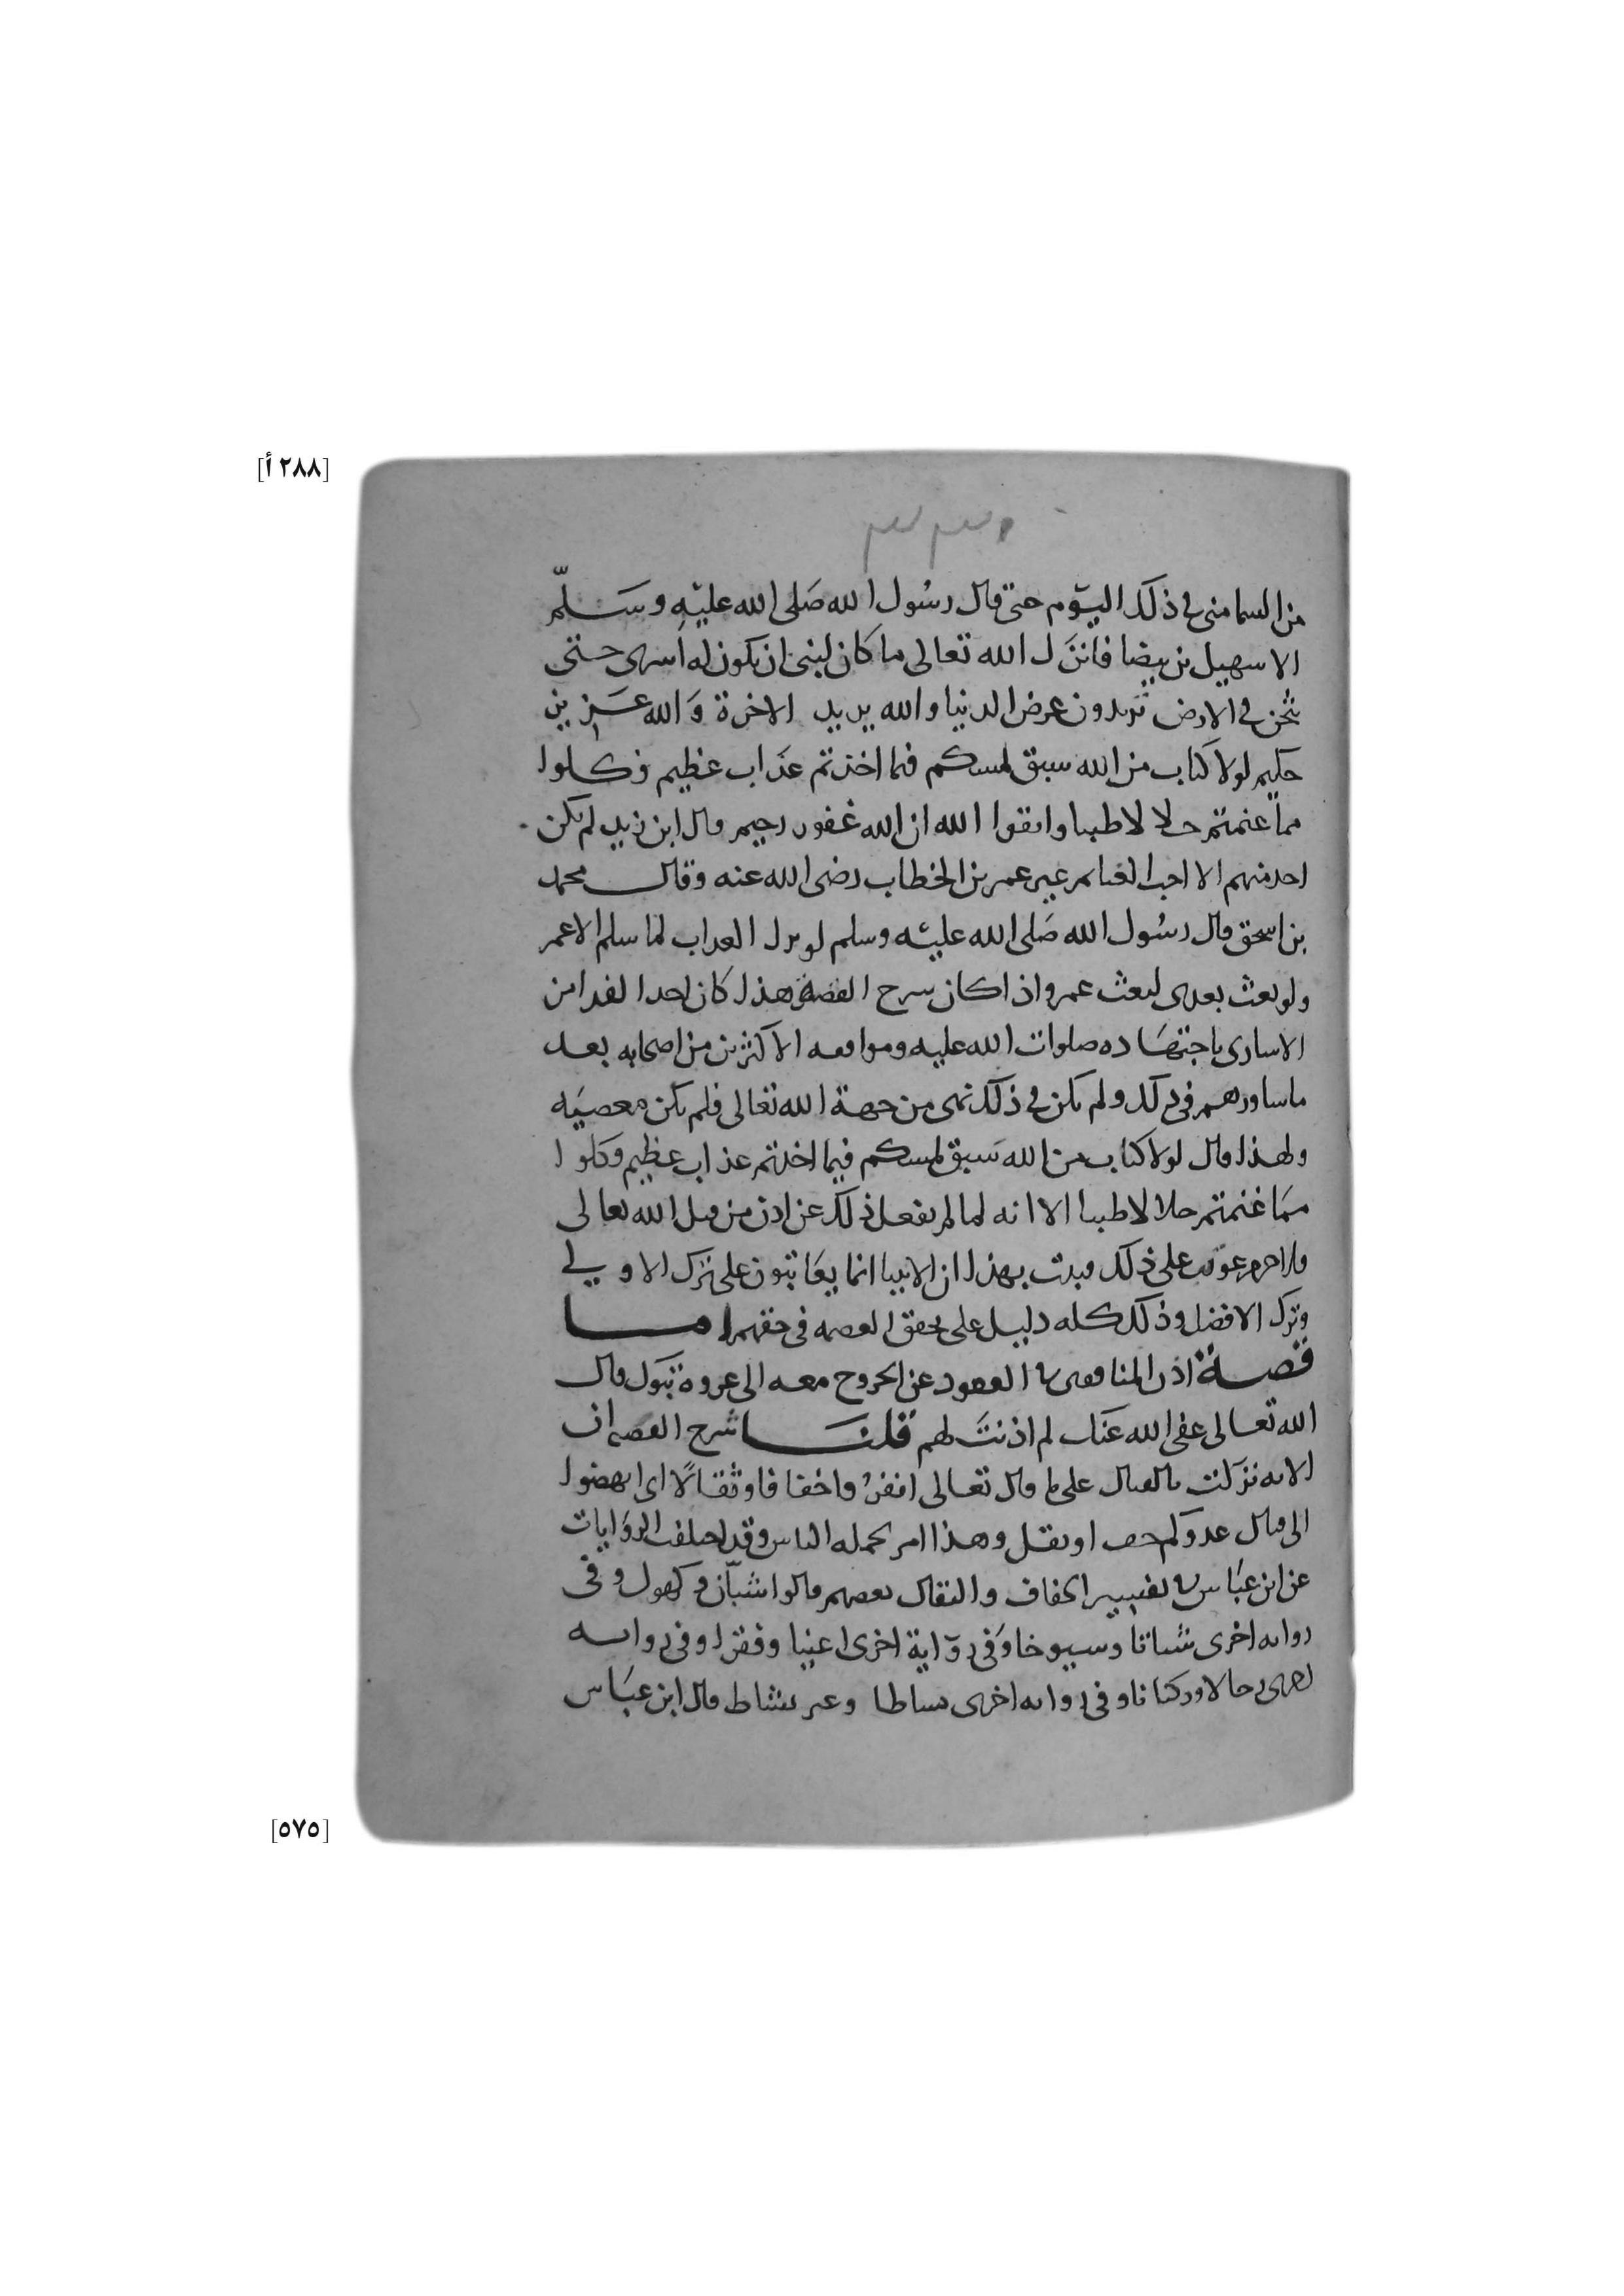 [٢٨٨ أ]
من السما منى فى ذلك اليوم حتى قال رسول الله صلى الله عليه وسلم
الا سهيل بن بيضا فانزل الله تعالى ما كان لنبى ان يكون له اسرى حتى
يثخن فى الارض تريدون عرض الدنيا والله يريد الاخرة والله عزيز
حكيم لولا كتاب من الله سبق لمسكم فيما اخذتم عذاب عظيم فكلوا
مما غنمتم حلالا طيبا واتقوا الله ان الله غفور رحيم قال ابن زيد لم يكن
احد منهم الا احب الغنائم غير عمر بن الخطاب رضى الله عنه وقال محمد
بن اسحق قال رسول الله صلى الله عليه وسلم لو نزل العذاب لما سلم الا عمر
ولو بعث بعدى لبعث عمر واذا كان شرح القصة هذا كان اخذ الفدا من
الاسارى باجتهاده صلوات الله عليه وموافقه الاكثرين من اصحابه بعد
ما شاورهم فى ذلك ولم يكن فى ذلك نهى من جهة الله تعالى فلم يكن معصيه
ولهذا قال لولا كتاب من الله سبق لمسكم فيما اخذتم عذاب عظيم وكلوا
مما غنمتم حلالا طيبا الا انه لما لم يفعل ذلك عن اذن من قبل الله تعالى
فلا جرم عوتب على ذلك فبدت بهذا ان الانبيا انما يعاتبون على ترك الاولى
وترك الافضل وذلك كله دليل على تحقق العصمه فى حقهم اما
قصة اذن المنافقين فى القعود عن الخروج معه الى غزوة تبوك قال
الله تعالى عفى الله عنك لم اذنت لهم قلنا شرح القصه ان
الايه نزلت بالقتال على ما قال تعالى انفروا خفافا وثقالا اى انهضوا
الى قتال عدوكم خف او ثقل وهذا امر تحمله الناس وقد اختلفت الروايات
عن ابن عباس فى تفسير الخفاف والثقال بعضهم قالوا شبان وكهول وفى
روايه اخرى شبانا وشيوخا وفى رواية اخرى اغنيا وفقرا وفى روايه
اخرى رجالا وركبانا وفى روايه اخرى نشاطا وغير نشاط قال ابن عباس
[٥٧٥]